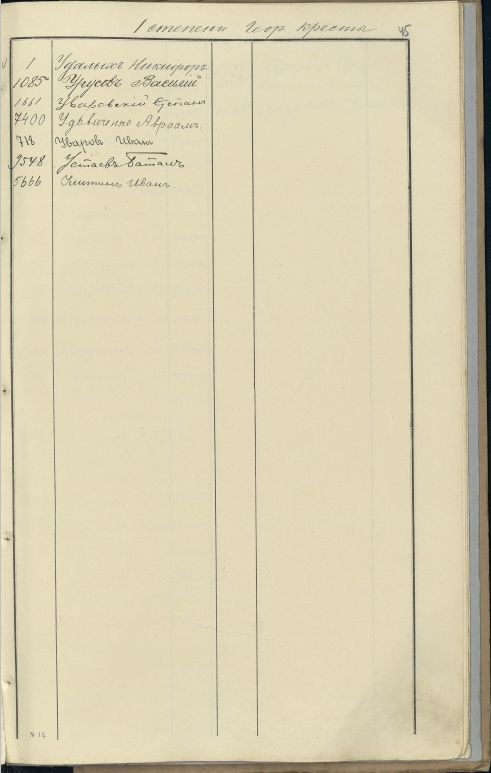 1 степени Геор. кресты 45
1 Удалыхъ Никифоръ
1085 Урусовъ Василій
1661 Уваровскій Степанъ
7400 Удовиченко Авраамъ.
718 Уваровъ Иванъ
9548 Устаевъ
5666 Улитинъ Иванъ.
№ 14.